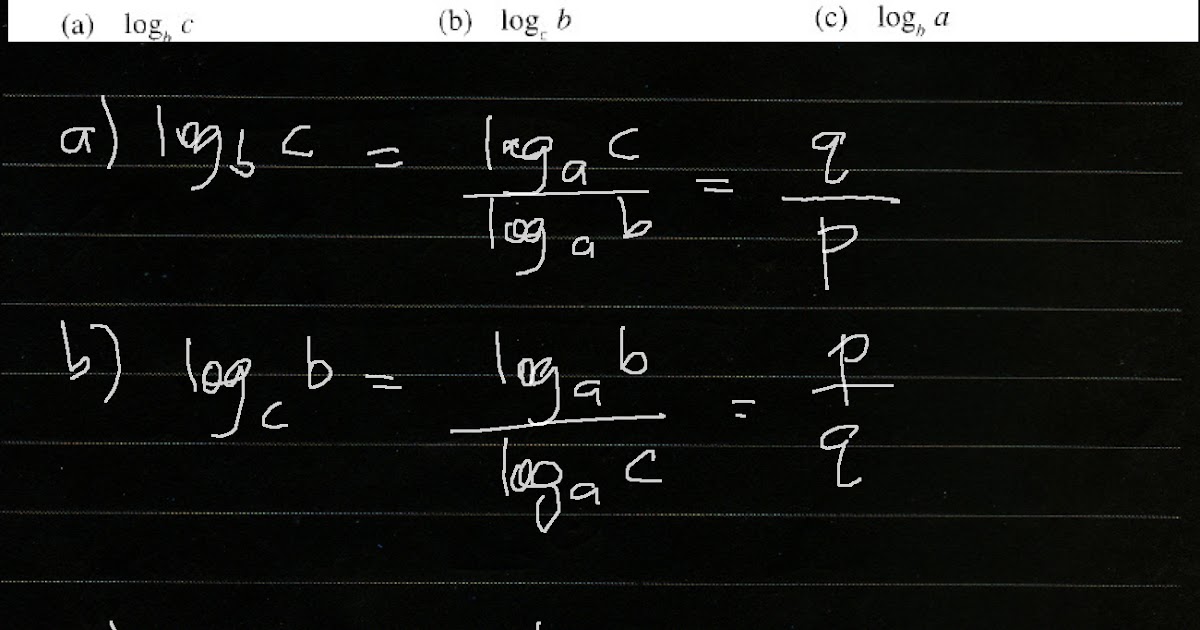 (a) log_b c (b) log_c b (c) log_b a
a) log_b c = log_a c / log_a b = q / p
b) log_c b = log_a b / log_a c = p / q